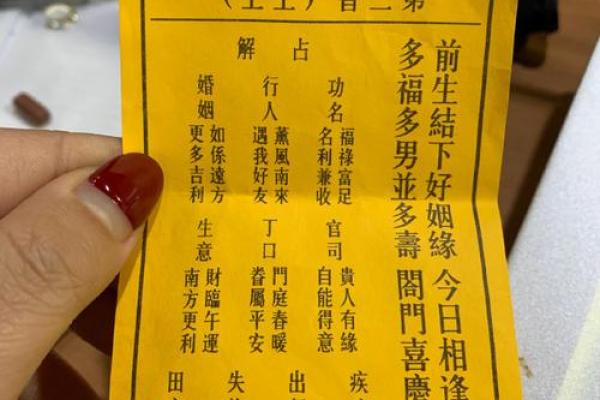 前生結下好姻緣 今日相逢
多福多男並多壽 閤門喜慶
占解
功名
福祿富足
名利兼收
行人
薰風南來
遇我好友
婚姻
如係遠方
更多吉利
官司
貴人有緣
自能得意
丁口
門庭春暖
眷屬平安
生意
財臨午運
南方更利
疾
出
失
田